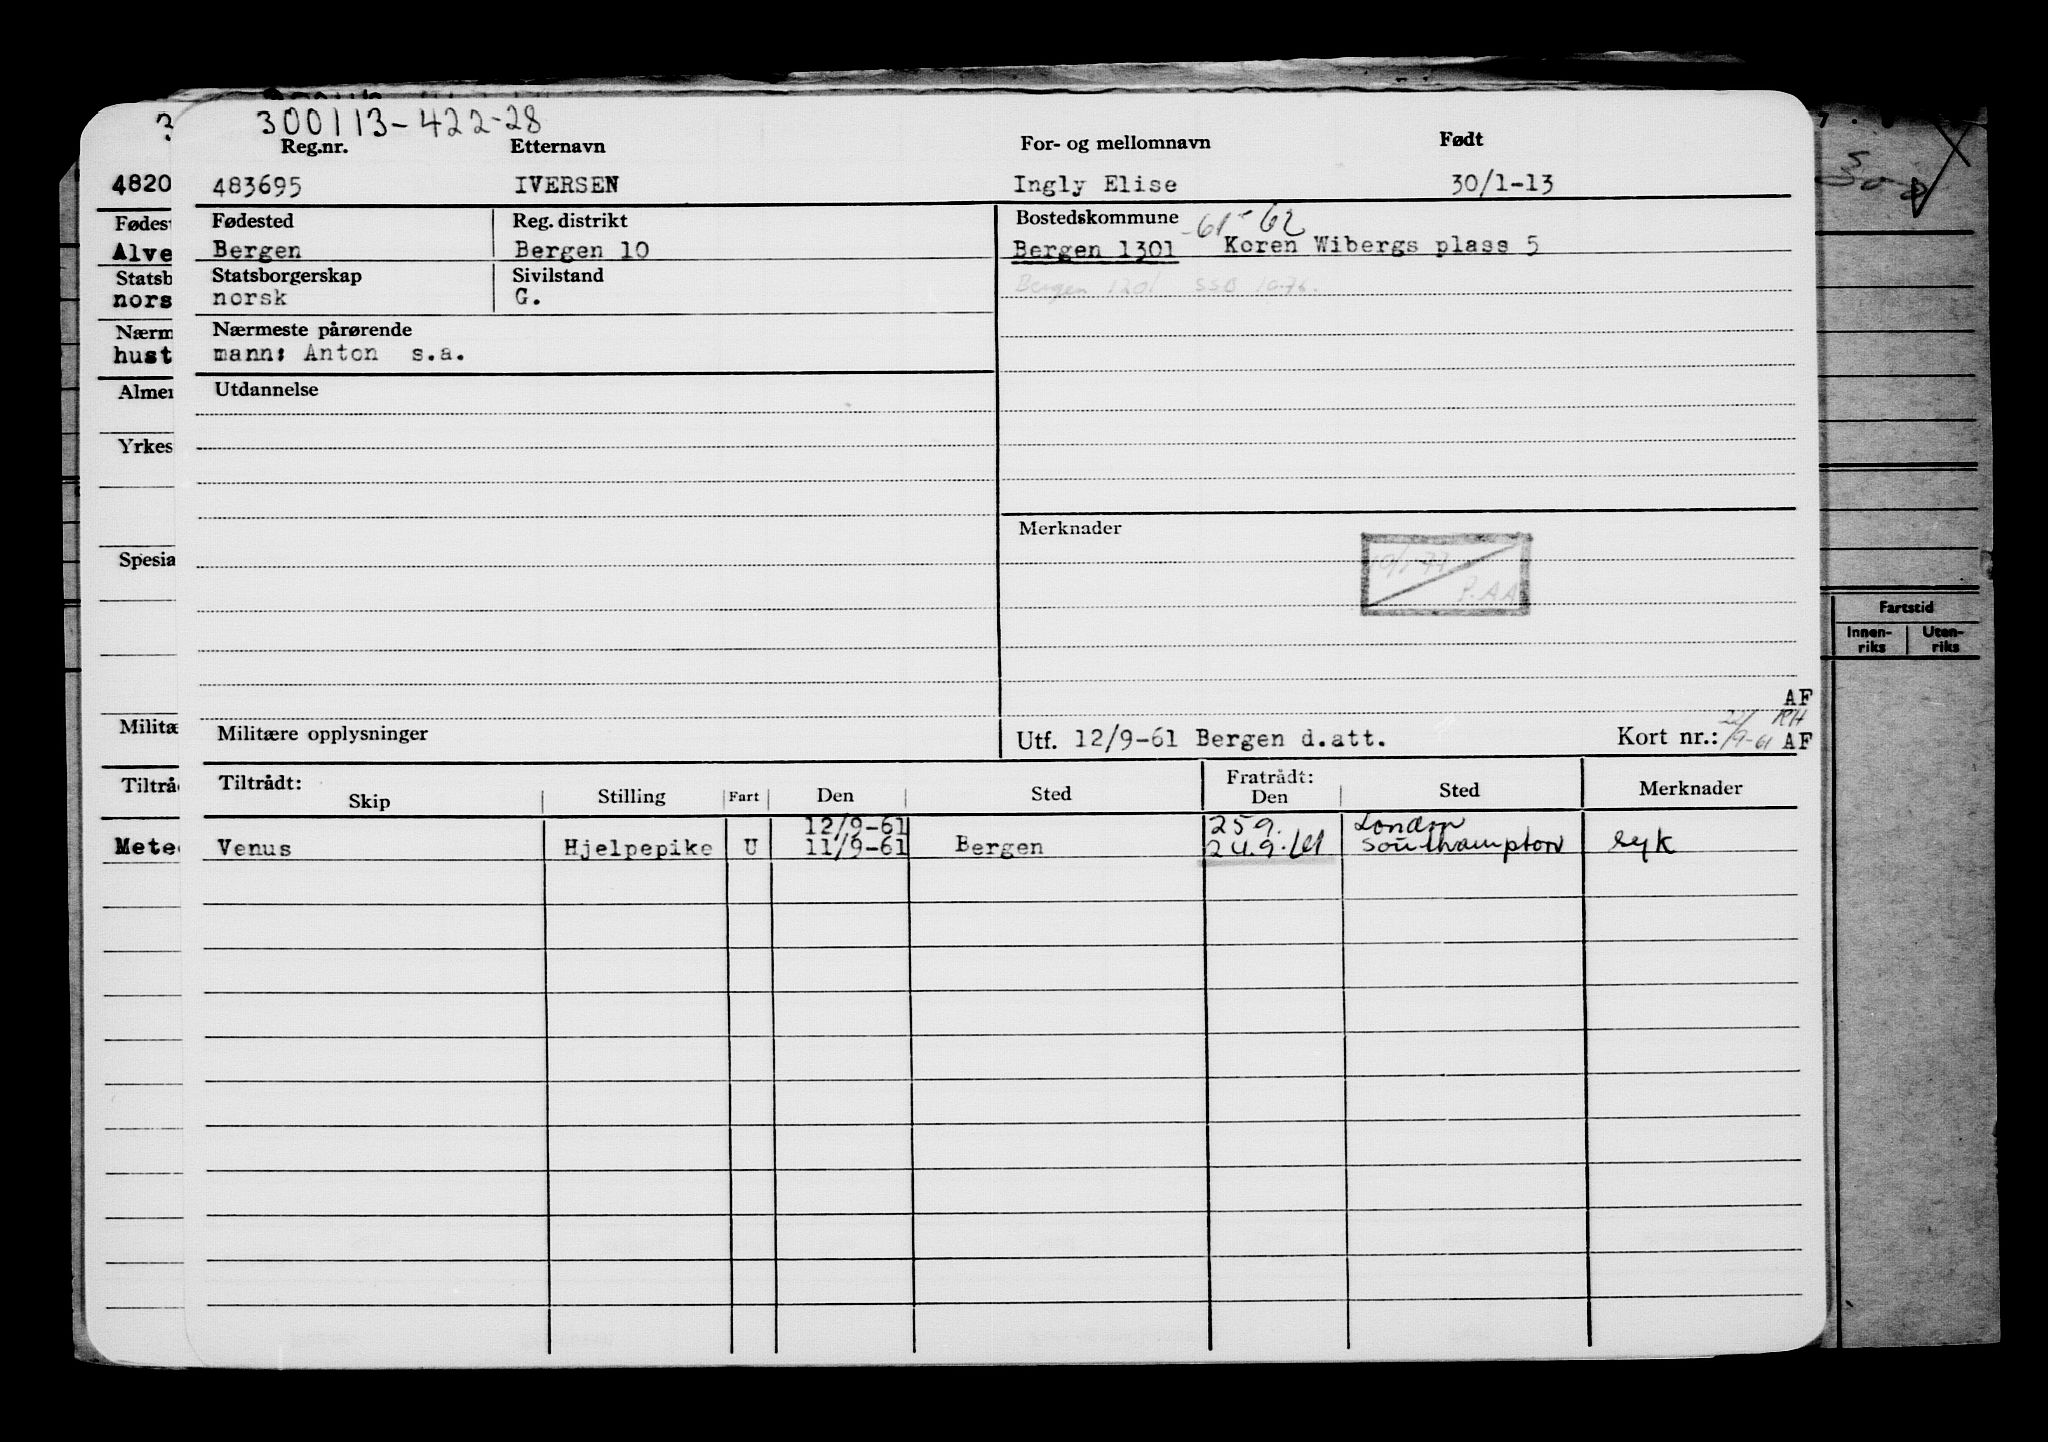 300113-422-28
Reg.nr. Etternavn For- og mellomnavn Født
4820 483695 IVERSEN Ingly Elise 30/1-13
Fødest Fødested Reg. distrikt Bostedskommune -61-62
Alve Bergen Bergen 10 Bergen 1301 Koren Wibergs plass 5
Statsb Statsborgerskap Sivilstand Bergen 1201 SSB 10-76.
nors norsk G.
Nærm Nærmeste pårørende
hust mann: Anton s.a.
Almen Utdannelse
Yrkes
Merknader
Spesia
P.A.A
Fartstid
Innen-riks Uten-riks
AF
Militæ Militære opplysninger Utf. 12/9-61 Bergen d.att. Kort nr.: 22/9-61 RH AF
Tiltråd Tiltrådt: Fratrådt:
Skip Stilling Fart Den Sted Den Sted Merknader
12/9-61 25.9. London
Mete Venus Hjelpepike U 11/9-61 Bergen 24.9.61 Southampton syk